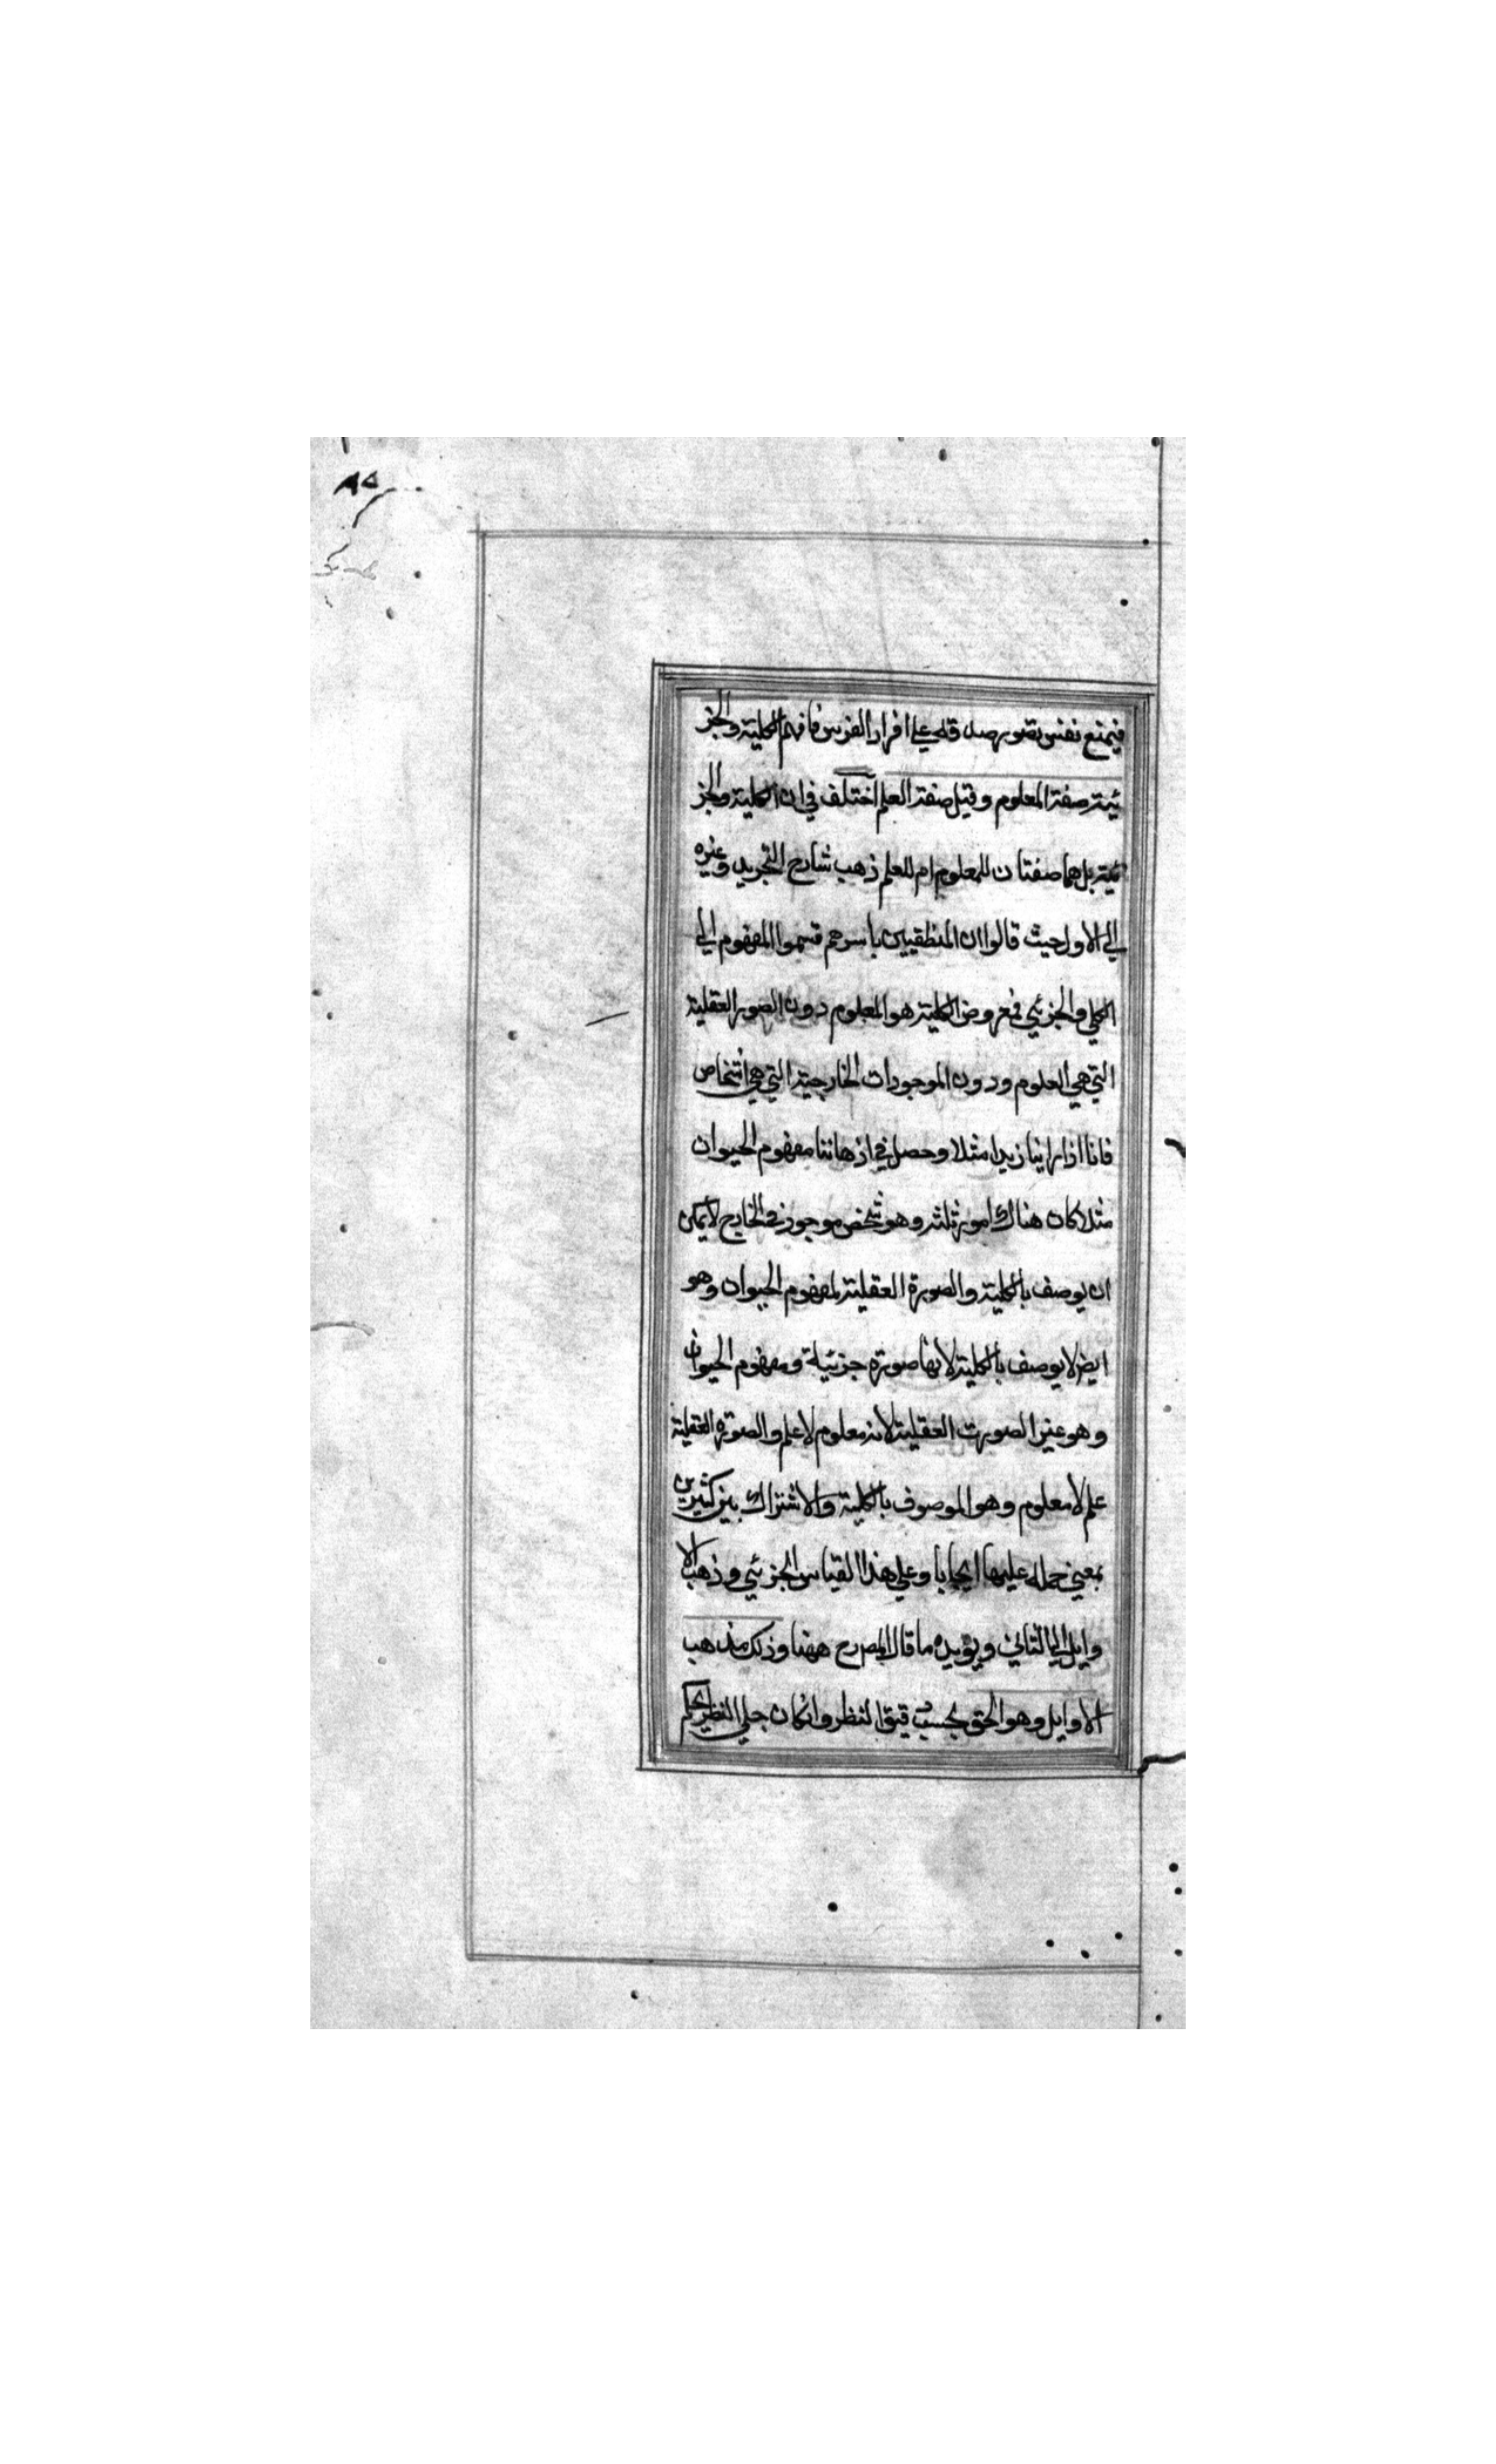 ٨٥
فيمنع نفس تصوره صدقه علي افراد الفرس فافهم الكلية والجز
ئية صفة المعلوم وقيل صفة العلم اختلف في ان الكلية والجز
ئية بل هما صفتان للمعلوم ام للعلم ذهب شارح التجريد وغيره
الي الاول حيث قالوا ان المنطقيين باسرهم قسموا المفهوم الي
الكلي والجزئي فمعروض الكلية هو المعلوم دون الصور العقلية
التي هي العلوم ودون الموجودات الخارجية التي هي اشخاص
فانا اذا راينا زيدا مثلا وحصل في اذهاننا مفهوم الحيوان
مثلا كان هناك امور ثلثة وهو شخص موجود في الخارج لا يمكن
ان يوصف بالكلية والصورة العقلية لمفهوم الحيوان وهو
ايضا لا يوصف بالكلية لانها صورة جزئية ومفهوم الحيوان
وهو غير الصورت العقلية لانه معلوم لا علم والصورة العقلية
علم لا معلوم وهو الموصوف بالكلية والاشتراك بين كثيرين
بمعني حمله عليها ايجابا وعلي هذا القياس الجزئي وذهب الا
وايل الي الثاني ويؤيده ما قال المص رح ههنا وذلك مذهب
الاوايل وهو الحق بحسب دقيق النظر وان كان جلي النظر يحكم